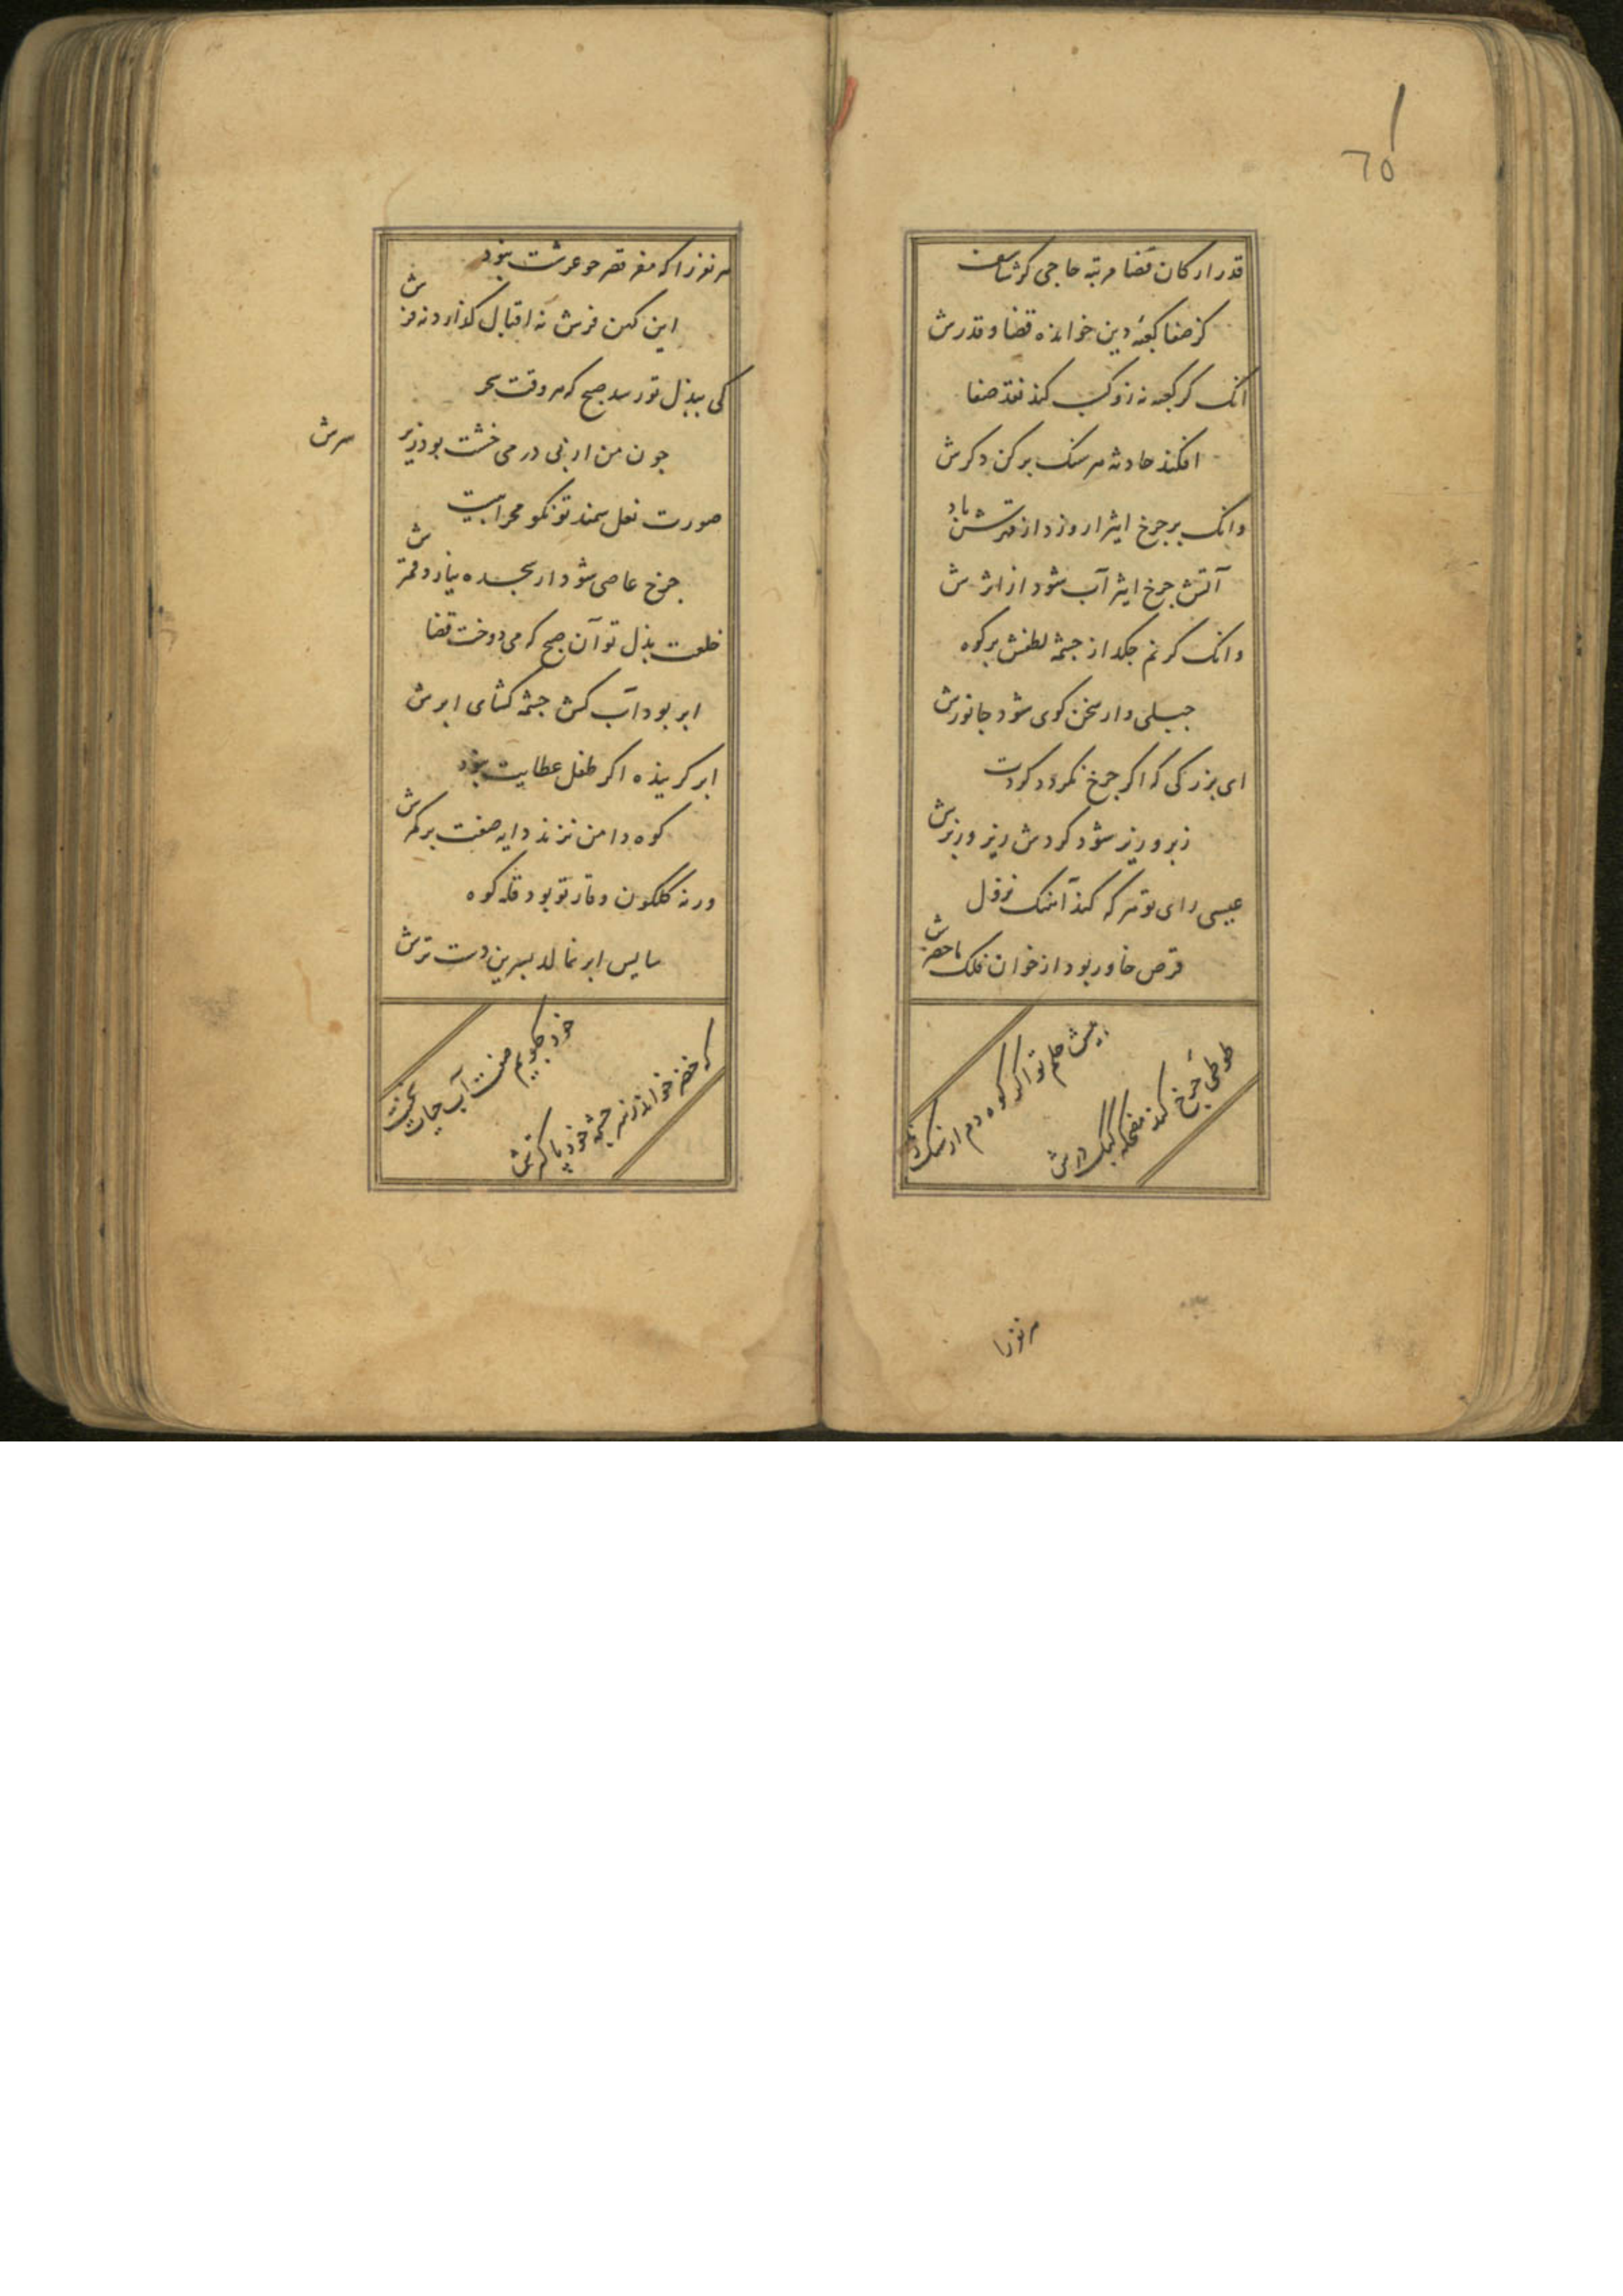 ٦٥
قدر ارکان قضا مرتبه حاجی کرشاسف
کز صفا کعبهٔ دین خوانده قضا و قدرش
انک کر کعبه نه زو کسب کند نقد صفا
افکند حادثه هر سنک برکن دکرش
وانک بر جرخ اثیر ار وزد از قهرش باد
آتش جرخ اثیر آب شود از اثرش
وانک کر نم جکد از جشمه لطفش بر کوه
جبلی وار سخن کوی شود جانورش
ای بزرکی که اکر جرخ نکردد کردت
زبر و زیر شود کردش زیر و زبرش
عیسی رای تو هر که کند آهنک نزول
قرص خاور بود از خوان فلک ماحضرش
بیش حلم تو اکر کوه دم از سنک زند
طوطی جرخ کند مضحکه کبک درش
هر نوزا
هر نوزا که مقر قصر جو عرشت نبود
این کهن فرش نه اقبال کذارد نه فرش
کی ببذل تو رسد صبح که هر وقت سحر
جون من ار نی درمی خشت بود زیر سرش
صورت نعل سمند تو نکو محرابیست
جرخ عاصی شود ار سجده نیارد قمرش
خلعت بذل تو آن صبح که می دوخت قضا
ابر بود آب کش جشمه کشای ابرش
ابر کرینده اکر طفل عطایت نبود
کوه دامن نزند دایه صفت بر کمرش
ورنه کلکون وقار تو بود قله کوه
سایس ابر نمالد بسرین دست ترش
خود جکویم صفت آب حیات سخنت
که خضر خواند ز سر جشمه خود پاکترش